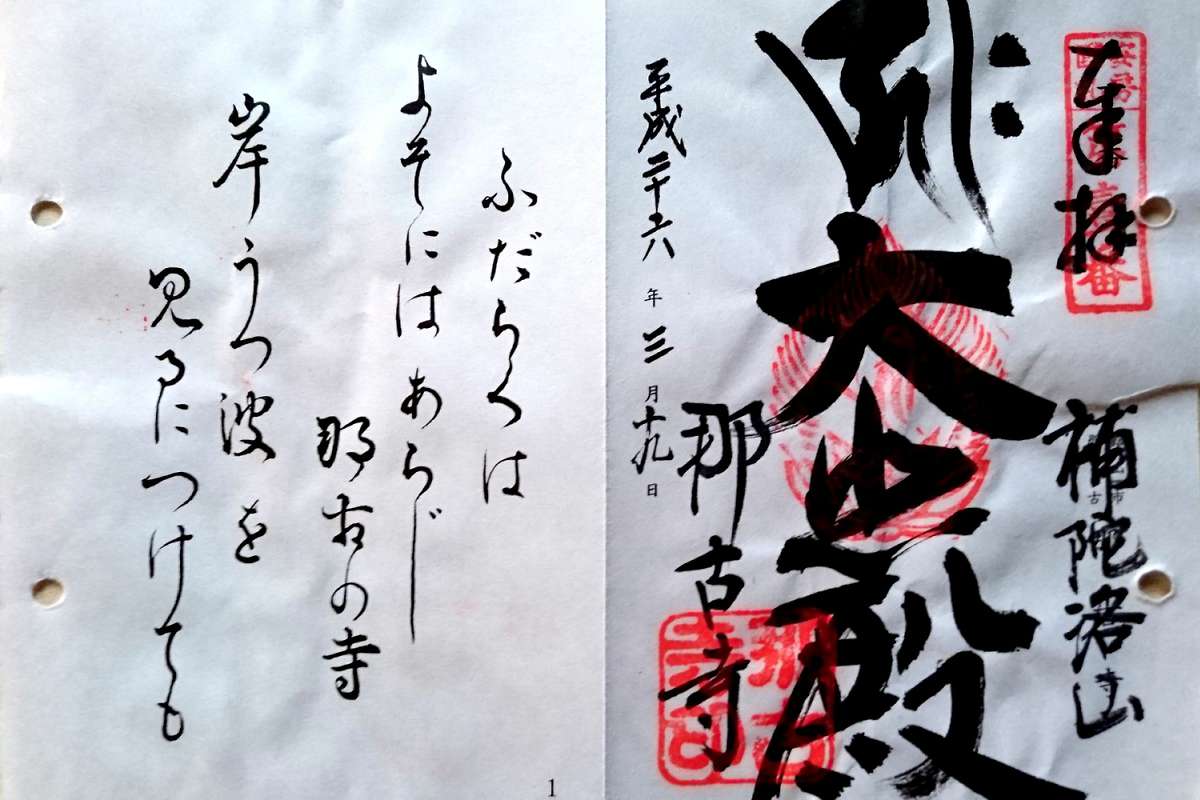 奉拝
補陀洛山
大悲殿
那古寺
平成二十六年三月十九日
ふだらくは
よそにはあらじ
那古の寺
岸うつ波を
見るにつけても
1